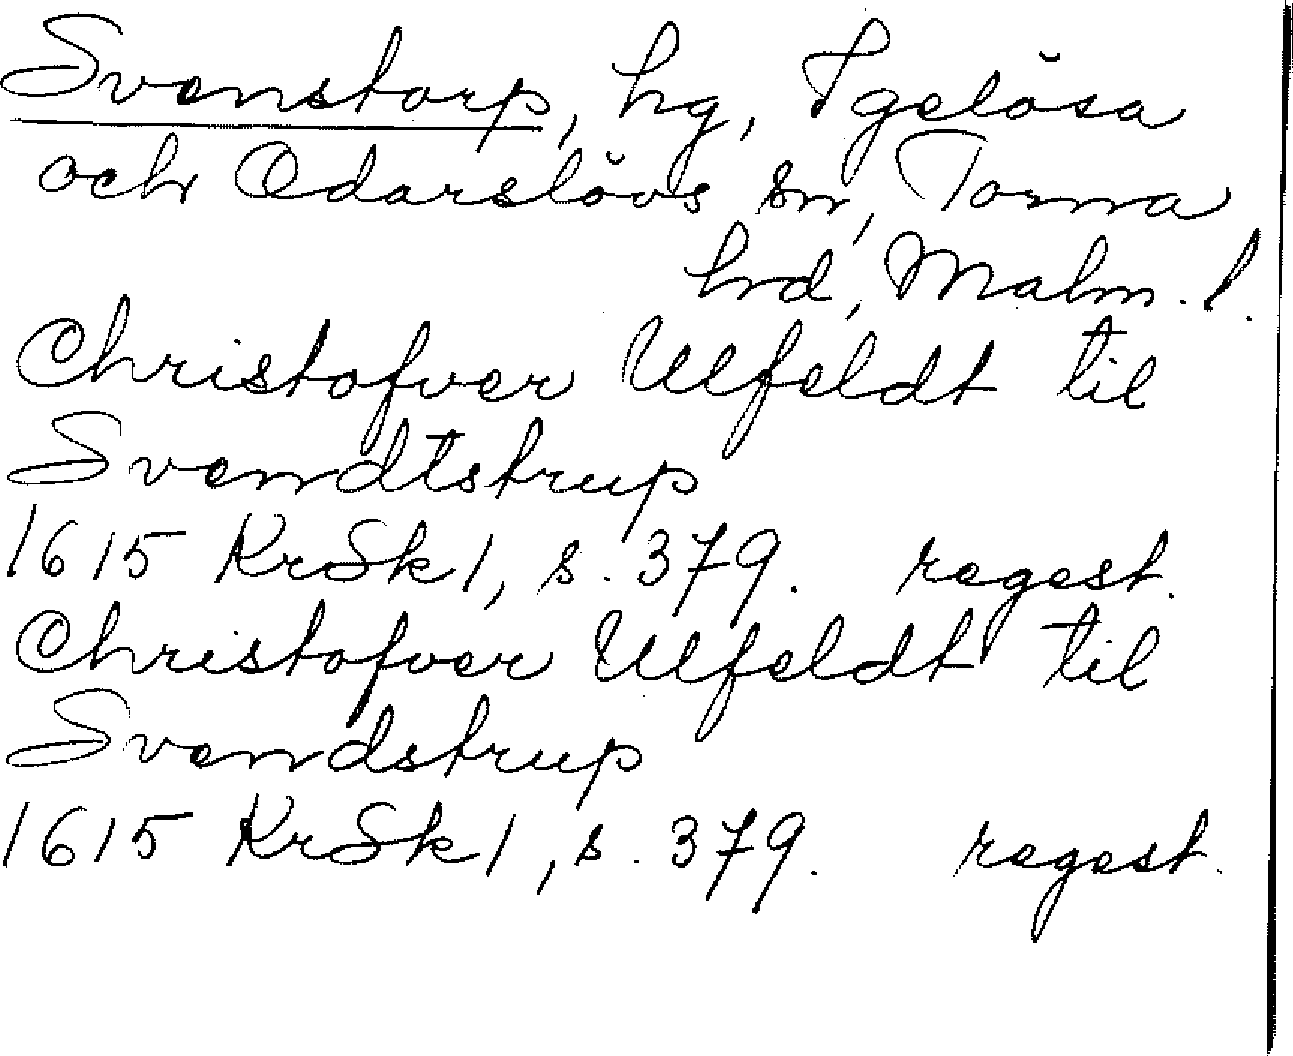 Svenstorp, hg, Igelösa
och Odarslövs sn, Torna
hrd, Malm. l.
Christofver Ulfeldt til
Svendtstrup
1615 KrSk 1, s. 379. regest.
Christofver Ulfeldt til
Svendstrup
1615 KrSk 1, s. 379. regest.